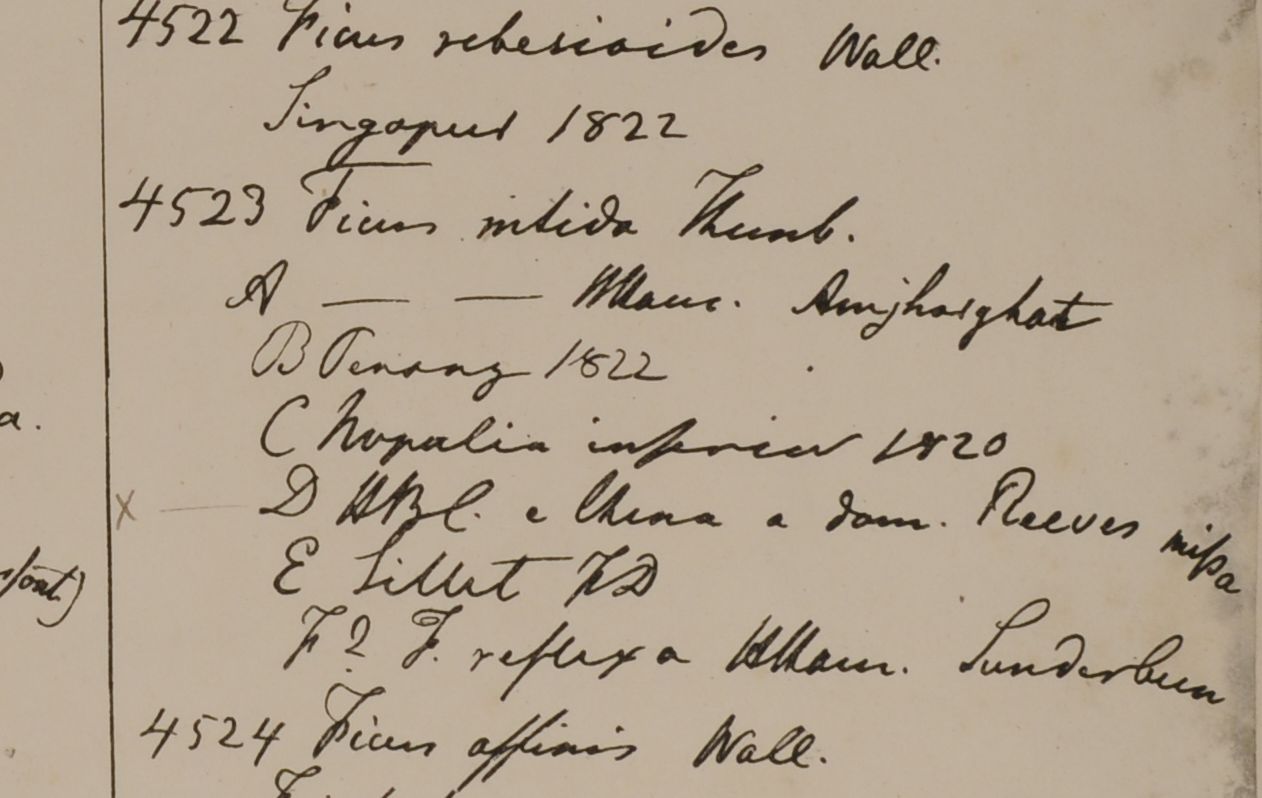 4522 Ficus rebesioides Wall.
Singapur 1822
4523 Ficus nitida Thunb.
A — — HHam. Amjhorghat
B Penang 1822
a.
C Napalia inferior 1820
x — D HBC. e China a dom. Reeves missa
E Sillet FD
F? F. reflexa HHam. Sunderbun
4524 Ficus affinis Wall.